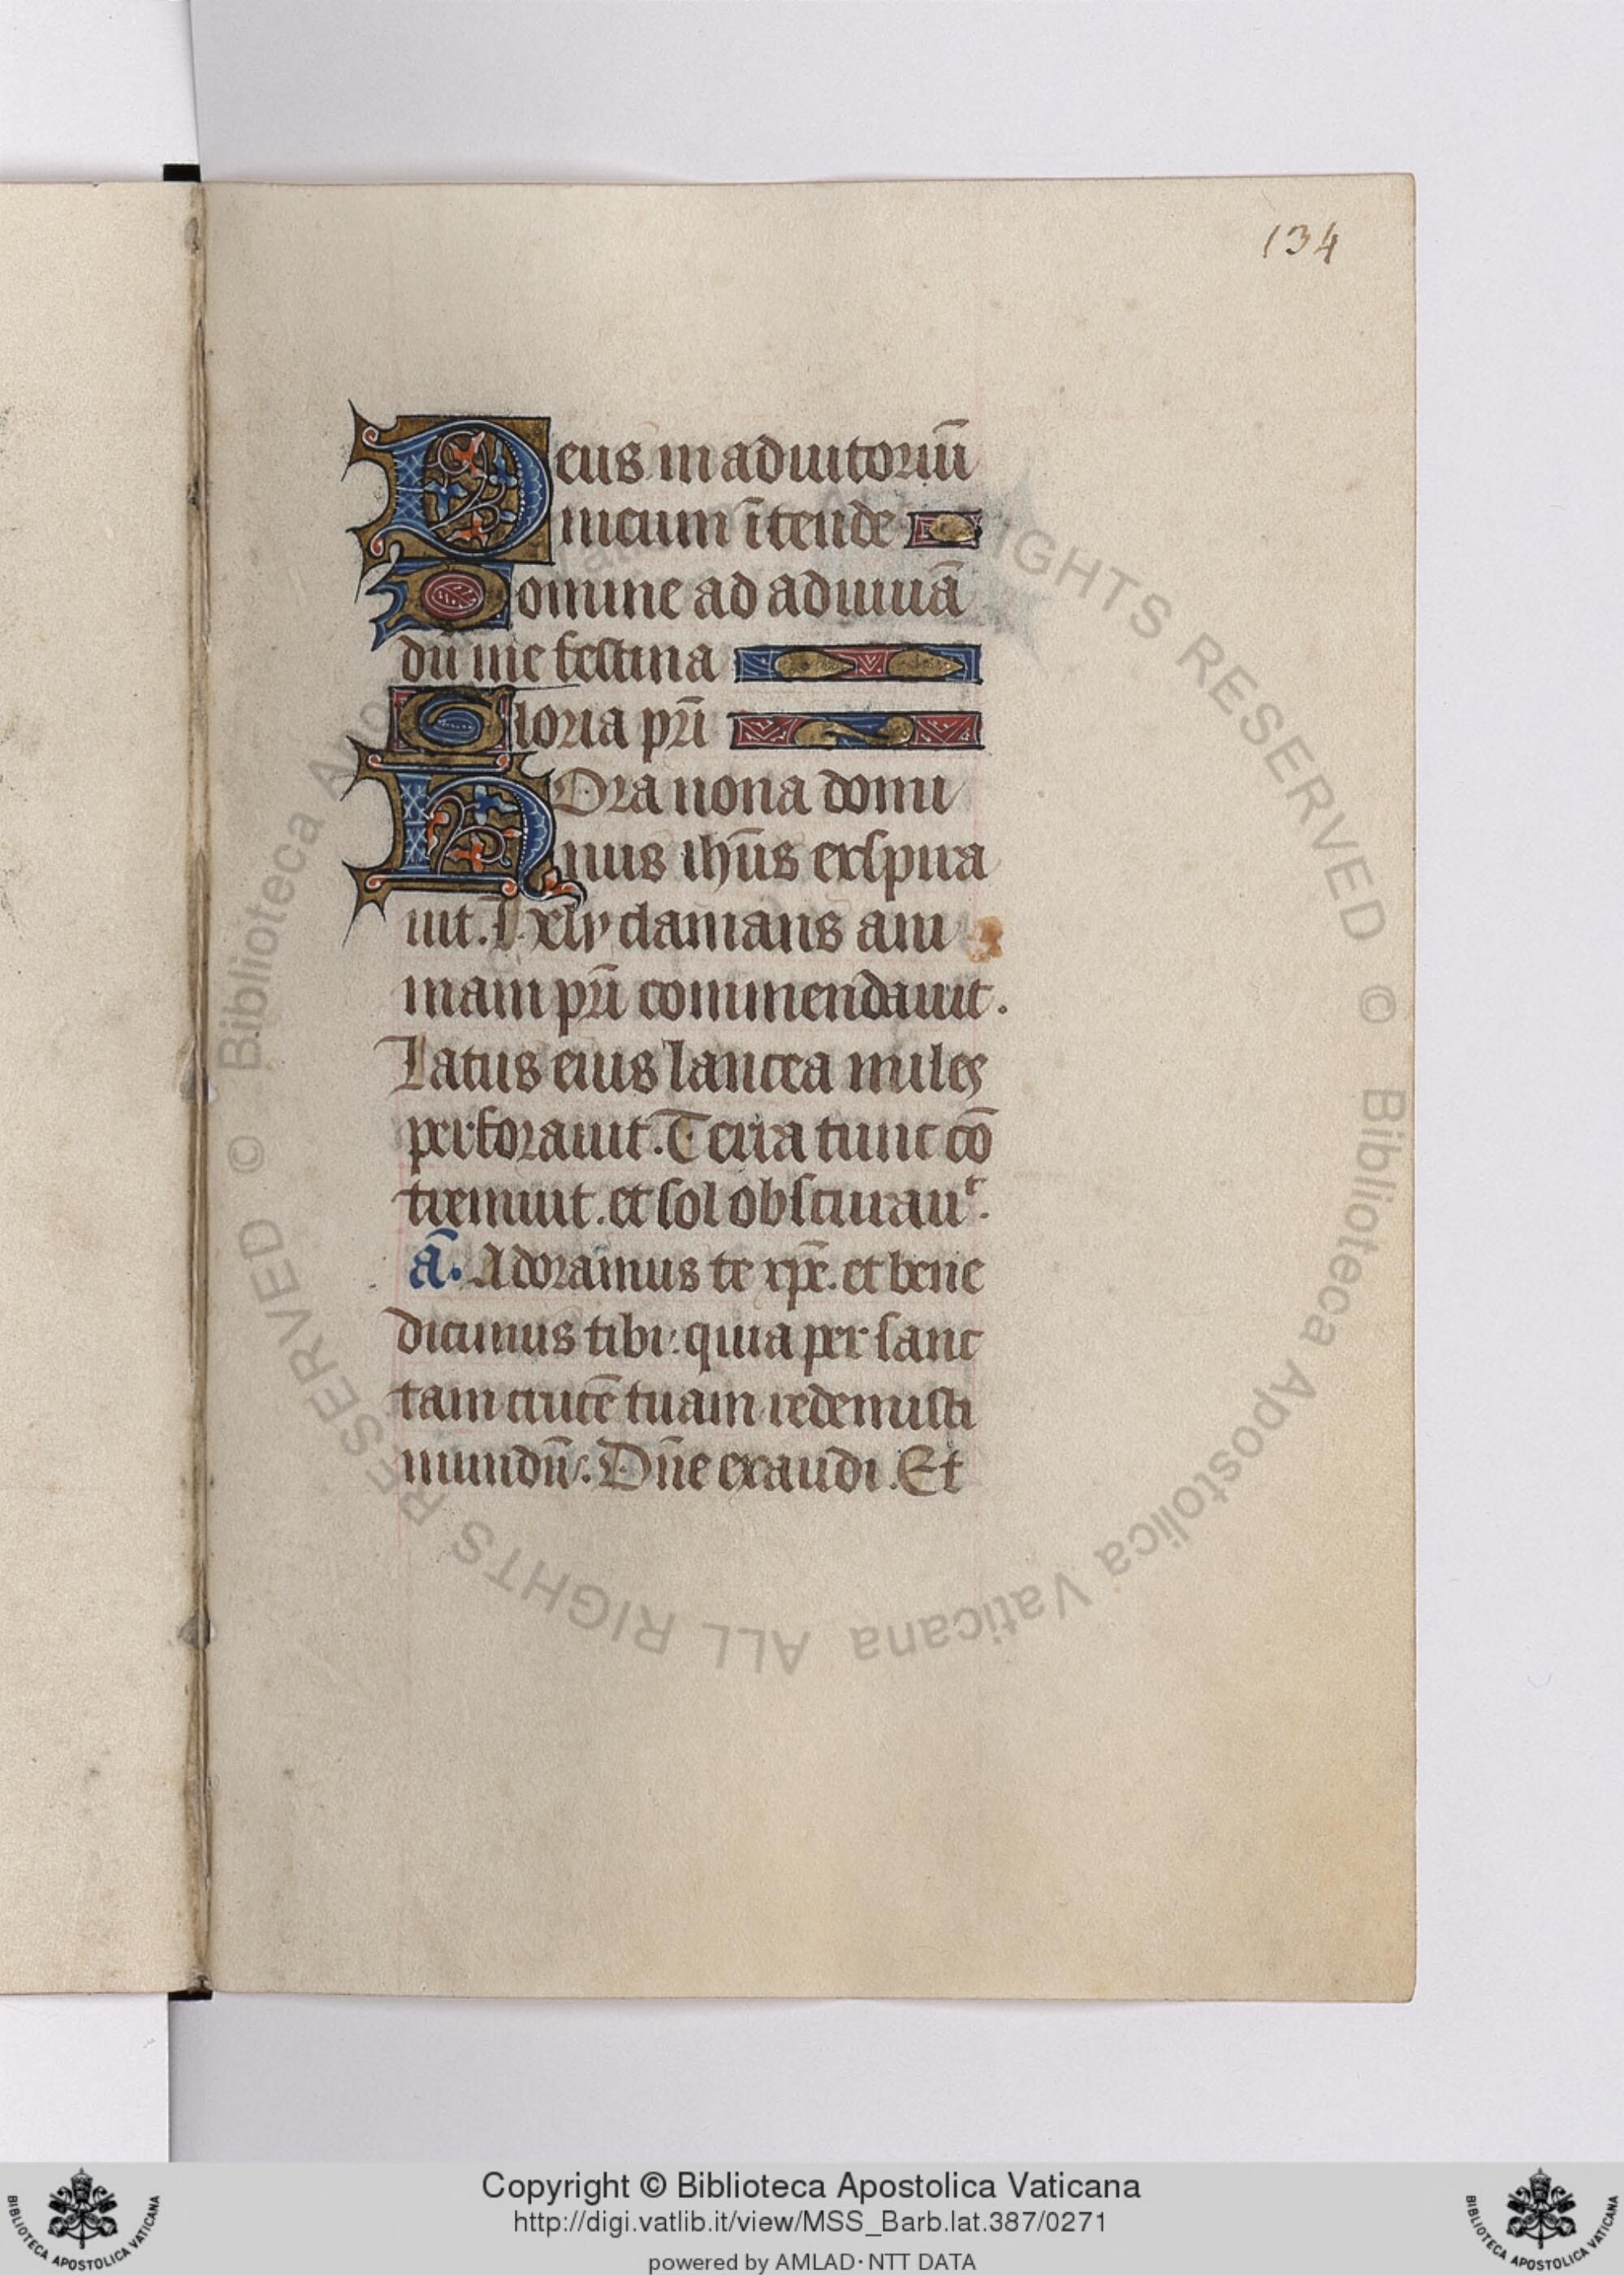 134
Deus in adiutoriū
meum ītende
Domine ad adiuuā
dū me festina
Gloria pr̄i
Hora nona domi
nus ih̄us exspira
uit. hely clamans ani
mam pr̄i commendauit.
Latus eius lancea miles
perforauit. Terra tunc cō
tremuit. et sol obscurauᵗ.
ā. Adoramus te xp̄e. et bene
dicimus tibi. quia per sanc
tam crucē tuam redemisti
mundū. Dn̄e exaudi. Et
© Biblioteca Apostolica Vaticana ALL RIGHTS RESERVED © Biblioteca Apostolica Vaticana ALL RIGHTS RESERVED
Copyright © Biblioteca Apostolica Vaticana
http://digi.vatlib.it/view/MSS_Barb.lat.387/0271
powered by AMLAD·NTT DATA
BIBLIOTECA APOSTOLICA VATICANA
BIBLIOTECA APOSTOLICA VATICANA